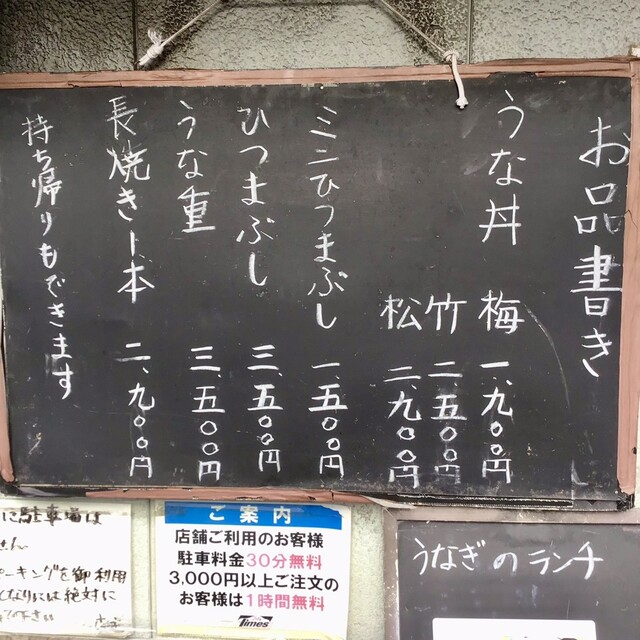 お品書き
うな丼 梅 一、九〇〇円
竹 二、五〇〇円
松 二、九〇〇円
ミニひつまぶし 一、五〇〇円
ひつまぶし 三、五〇〇円
うな重 三、五〇〇円
長焼き一本 二、九〇〇円
持ち帰りもできます
に駐車場は
せん
ーキングを御利用
なりには絶対に
下さい
店主
ご案内
店舗ご利用のお客様
駐車料金30分無料
3,000円以上ご注文の
お客様は1時間無料
Times
うなぎのランチ